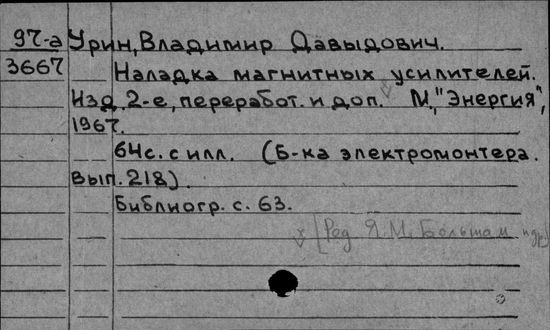 97-а Урин, Владимир Давыдович.
3667 Наладка магнитных усилителей.
Изд. 2-е, переработ. и доп. М., "Энергия",
1967.
64с. с илл. (Б-ка электромонтера.
Вып. 218).
Библиогр. с. 63.
[Ред. Я.М. Большам и др.]